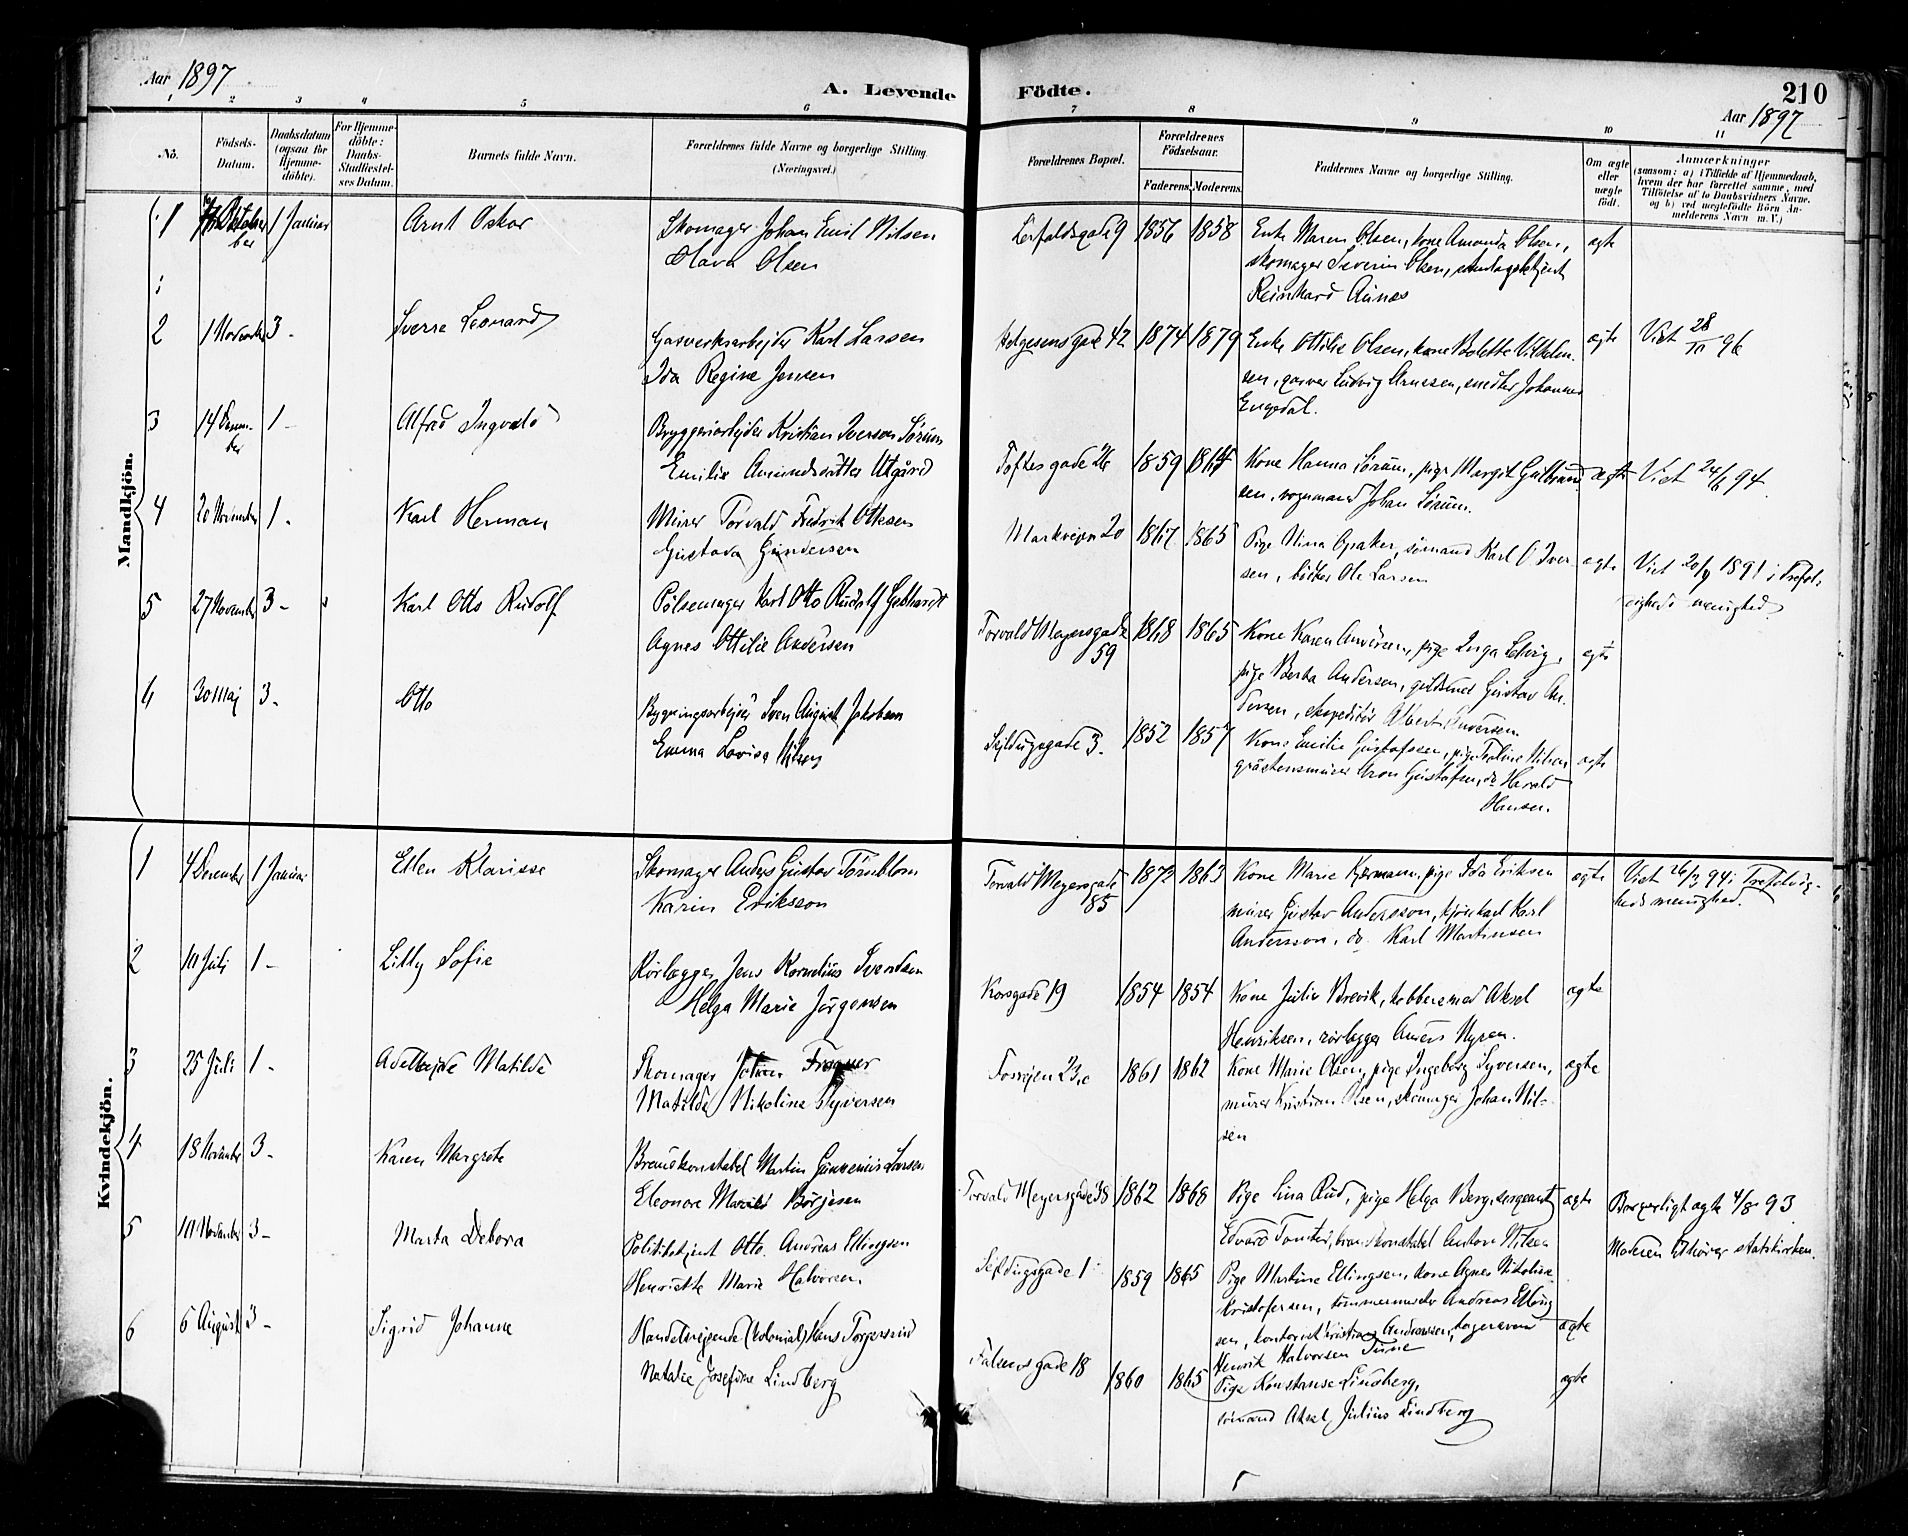 Aar 1897
A. Levende Födte.
210
Aar 1897
1 2 3 4 5 6 7 8 9 10 11
No.
Födsels-
Datum.
Daabsdatum
(ogsaa for
Hjemme-
döbte).
For Hjemme-
döbte:
Daabs-
Stadfæstel-
ses Datum.
Barnets fulde Navn.
Forældrenes fulde Navne og borgerlige Stilling
(Næringsvei.)
Forældrenes Bopæl.
Forældrenes
Födselsaar.
Faderens.
Moderens.
Faddernes Navne og borgerlige Stilling.
Om ægte
eller
uægte
födt.
Anmærkninger
(saasom: a) i Tilfælde af Hjemmedaab,
hvem der har forrettet samme, med
Tilföielse af to Daabsvidners Navne,
og b) ved uægtefödte Börn An-
melderens Navn m. V.)
Mandkjön.
1 1 Januar Arnt Oskar Skomager Johan Emil Nilsen
Olava Olsen
9 1856 1858 Enke Maren Olsen, kone Amanda Olsen,
skomager Severin Olsen,
Reinhard Aunes
ægte
2 1 November 3 - Sverre Leonard Gasverksarbejder Karl Larsen
Ida Regine Jensen
Helgesensgade 42 1874 1879 Enke Ottilie Olsen, kone Bolette Vilhelm-
sen, garver Ludvig Arnesen, smed Johannes
Engedal.
ægte Viet 28/10 96
3 14 Decem-
ber 1 - Alfred Ingvald Bryggeriarbejder Kristian Iversen Sörum
Emilie Amundsdatter Utgård
Toftesgade 26 1859 Kone Hanna Sörum, pige Margit Gulbrand-
sen, vognmand Johan Sörum.
ægte Viet 94.
4 20 November 1 - Karl Herman Murer Torvald Fredrik Ottesen
Gustava Gundersen
Markvejen 20 1867 1865 Pige Nina Opaker, sömand Karl O Iver-
sen, Ole Larsen
ægte Viet 1891 i Trefol-
digheds menighed
5 27 November 3 - Karl Otto Rudolf Pölsemager Karl Otto Rudolf Gebhardt
Agnes Ottilie Andersen
Torvald Meyersgade
59 1868 1865 Kone Karen Andersen, pige Inga
pige Berta Andersen, Gustav An-
dersen, ekspeditör Albert Andersen.
ægte
6 30 Maj 3 - Otto Bygningsarbejder Sven August Jakobsen
Emma Lovisa Nilsen
3. 1852 1857 Kone Emilie Gustafssen, pige Nilsen
gråstensmurer Aron Gustafsen, do Harald
Hansen.
ægte
Kvindekjön.
1 4 December 1 Januar Ellen Klarisse Skomager Anders Gustav Törnblom
Karin Eriksson
Torvald Meyersgade
85 1872 1863 Kone Marie pige Ida Eriksen
murer Gustav Andersson, Karl
Andersson, do Karl Martinsen
ægte Viet 94 i Trefoldig-
heds menighed.
2 Juli 1 - Lilly Sofie Rörlægger Jens Kornelius Svendsen
Helga Marie Jörgensen
Korsgade 19 1854 1854 Kone Julie Brevik, kobbersmed Aksel
Henriksen, rörlægger Anders Nyren.
ægte
3 25 Juli 1 - Adelhejde Matilde Skomager Johan Frogner
Matilde Nikoline Syversen
Fossvejen 23, c 1861 1862 Kone Marie Olsen, pige Ingeborg Syversen,
murer Kristian Olsen, skomager Johan Nil-
sen
ægte
4 18 November 3 - Karen Margrete Brandkonstabel Martin Larsen
Eleonore Börjesen
Torvald Meyersgade 38 1862 1868 Pige Lina Rud, pige Helga Berg, sergeant
Edvard brandkonstabel Anton Nilsen
ægte Borgerligt ægte 4/8 93
Moderen tilhörer statskirken.
5 November 3 - Marta Debora Politibetjent Otto Andreas Ellingsen
Henriette Marie Halvorsen.
Seildugsgade 1 1859 1865 Pige Martine Ellingsen, kone Agnes Nikoline
Kristofersen, tömmermester Andreas Elling-
sen, kontorist Kristian Andreassen,
Henrik Halvorsen
ægte
6 6 August 3 - Sigrid Johanne Handelsrejsende (kolonial) Hans Torgersrud
Natalie Josefine Lindberg
Falsensgade 18 1860 1865 Pige Konstanse Lindberg,
sömand Aksel Julius Lindberg
ægte